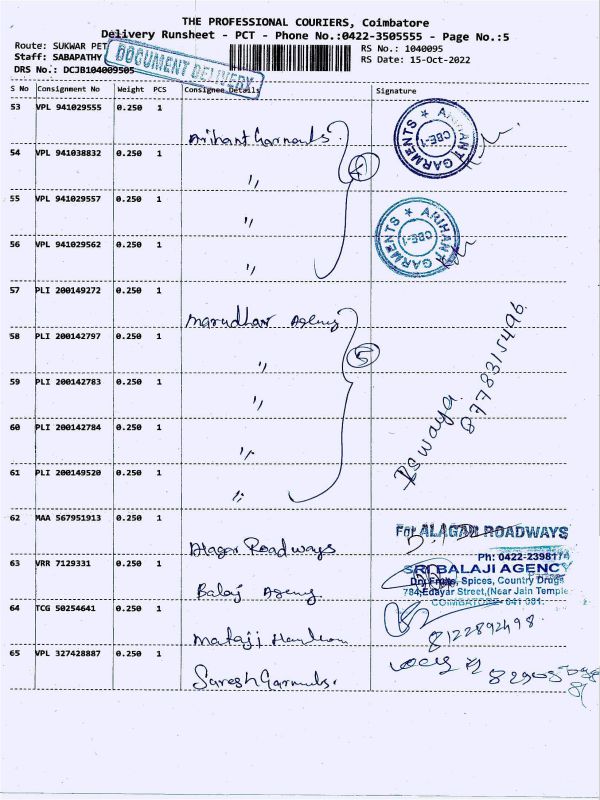 THE PROFESSIONAL COURIERS, Coimbatore
Delivery Runsheet - PCT - Phone No.:0422-3505555 - Page No.:5
Route: SUKWAR PET
RS No.: 1040095
Staff: SABAPATHY
RS Date: 15-Oct-2022
DRS No.: DCJB104009505
DOCUMENT DELIVERY
S No Consignment No Weight PCS Consignee Details Signature
53 VPL 941029555 0.250 1 Arihant Garments
ARIHANT GARMENTS ★ CBE-1
54 VPL 941038832 0.250 1 〃
4
55 VPL 941029557 0.250 1 〃
ARIHANT GARMENTS ★ CBE-1
56 VPL 941029562 0.250 1 〃
57 PLI 200149272 0.250 1 Marudhar Agency
58 PLI 200142797 0.250 1 〃
5
59 PLI 200142783 0.250 1 〃
60 PLI 200142784 0.250 1 〃
61 PLI 200149520 0.250 1 〃
8778315496
62 MAA 567951913 0.250 1 Alagar Roadways
For ALAGAR ROADWAYS
63 VRR 7129331 0.250 1 Balaj Agency
Ph: 0422-2398174
SRI BALAJI AGENCY
Dry Fruits, Spices, Country Drugs
784, Edayar Street, (Near Jain Temple
COIMBATORE - 641 001.
64 TCG 50254641 0.250 1 Mataji
8122892498
65 VPL 327428887 0.250 1 Suresh Garments.